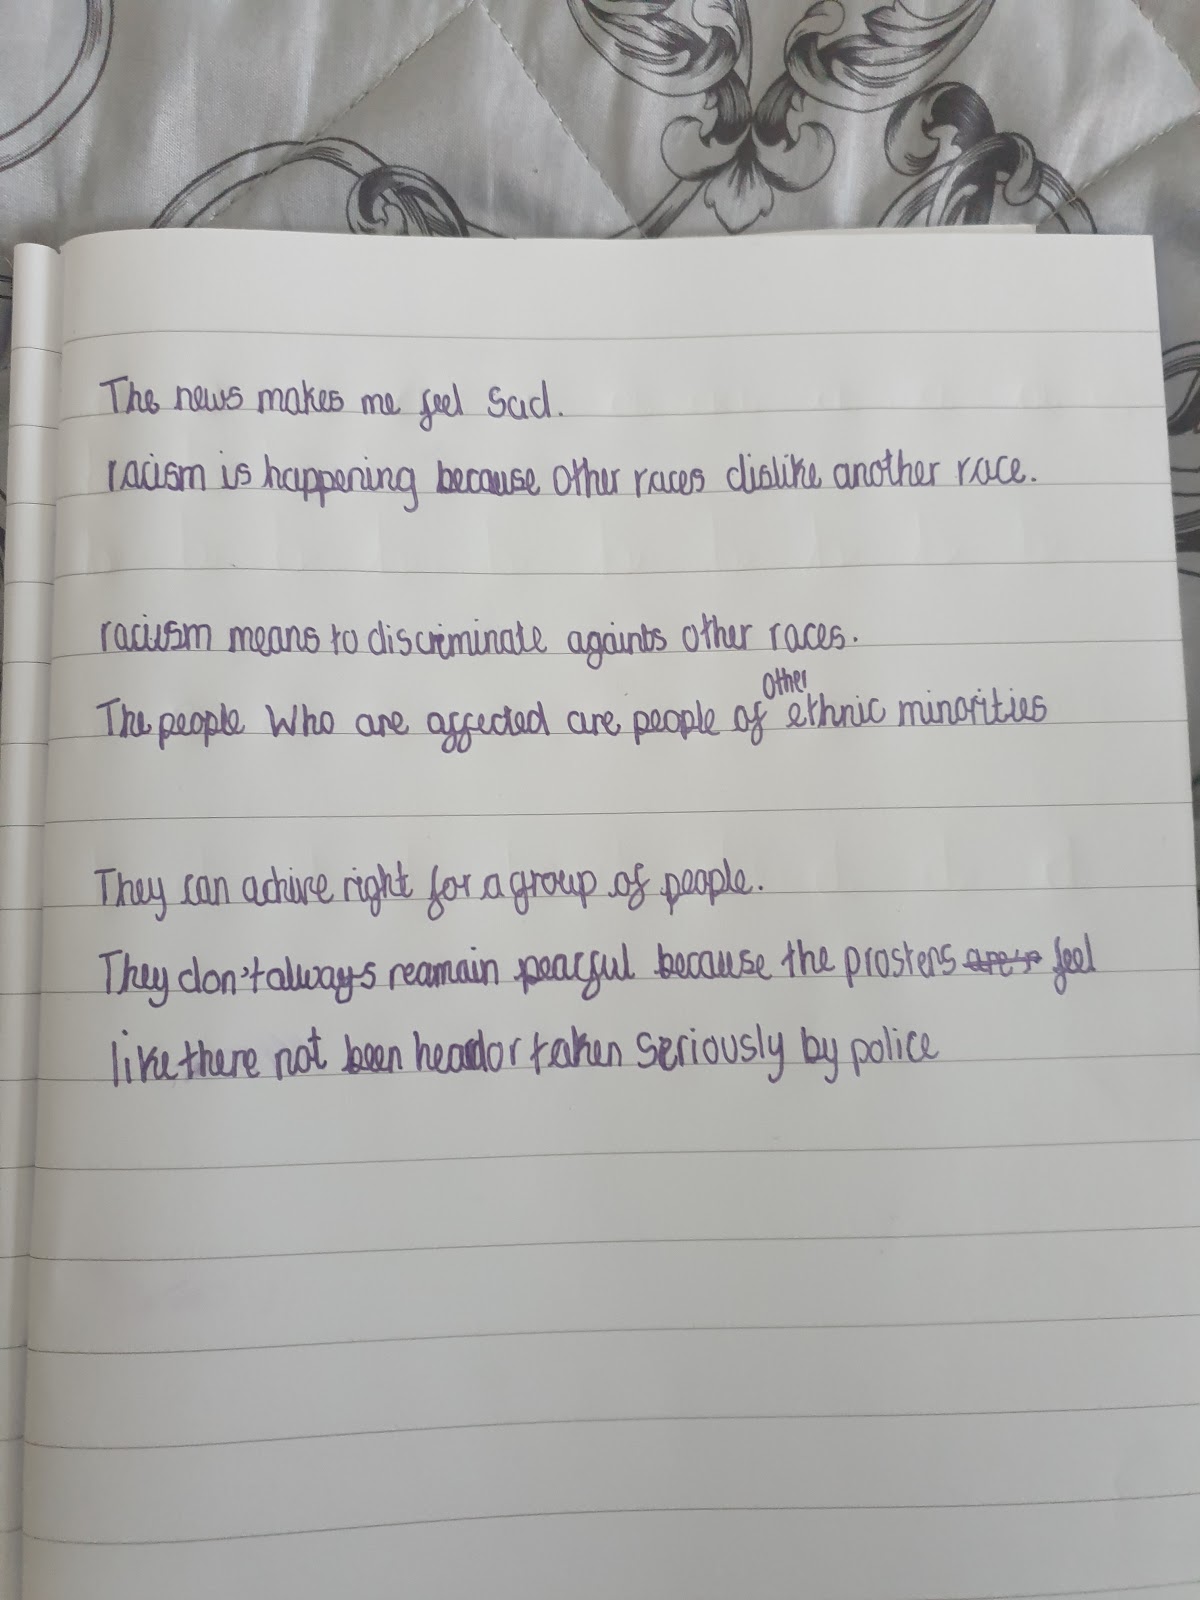 The news makes me feel sad.
racism is happening because other races dislike another race.
racism means to discriminate againts other races.
The people who are affected are people of other ethnic minorities
They can achive right for a group of people.
They don't always reamain peacful because the prosters feel
like there not been heard or taken seriously by police